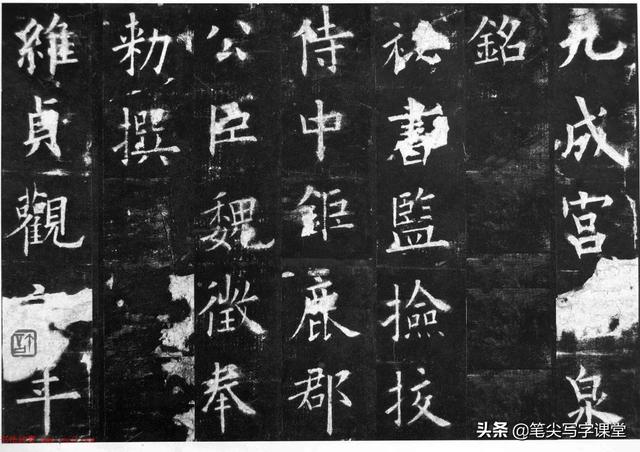 九成宮泉
銘
祕書監撿挍
侍中鉅鹿郡
公臣魏徵奉
勑撰
維貞觀六年
头条 @笔尖写字课堂